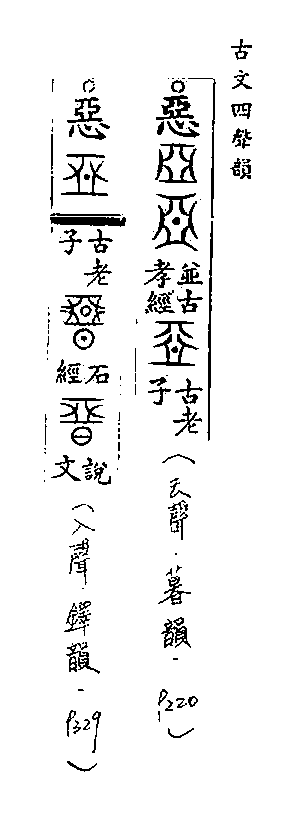 古文四聲韻
惡 並古孝經 古老子 (去聲．暮韻． P220)
惡 古老子 石經 說文 (入聲．鐸韻． P329)